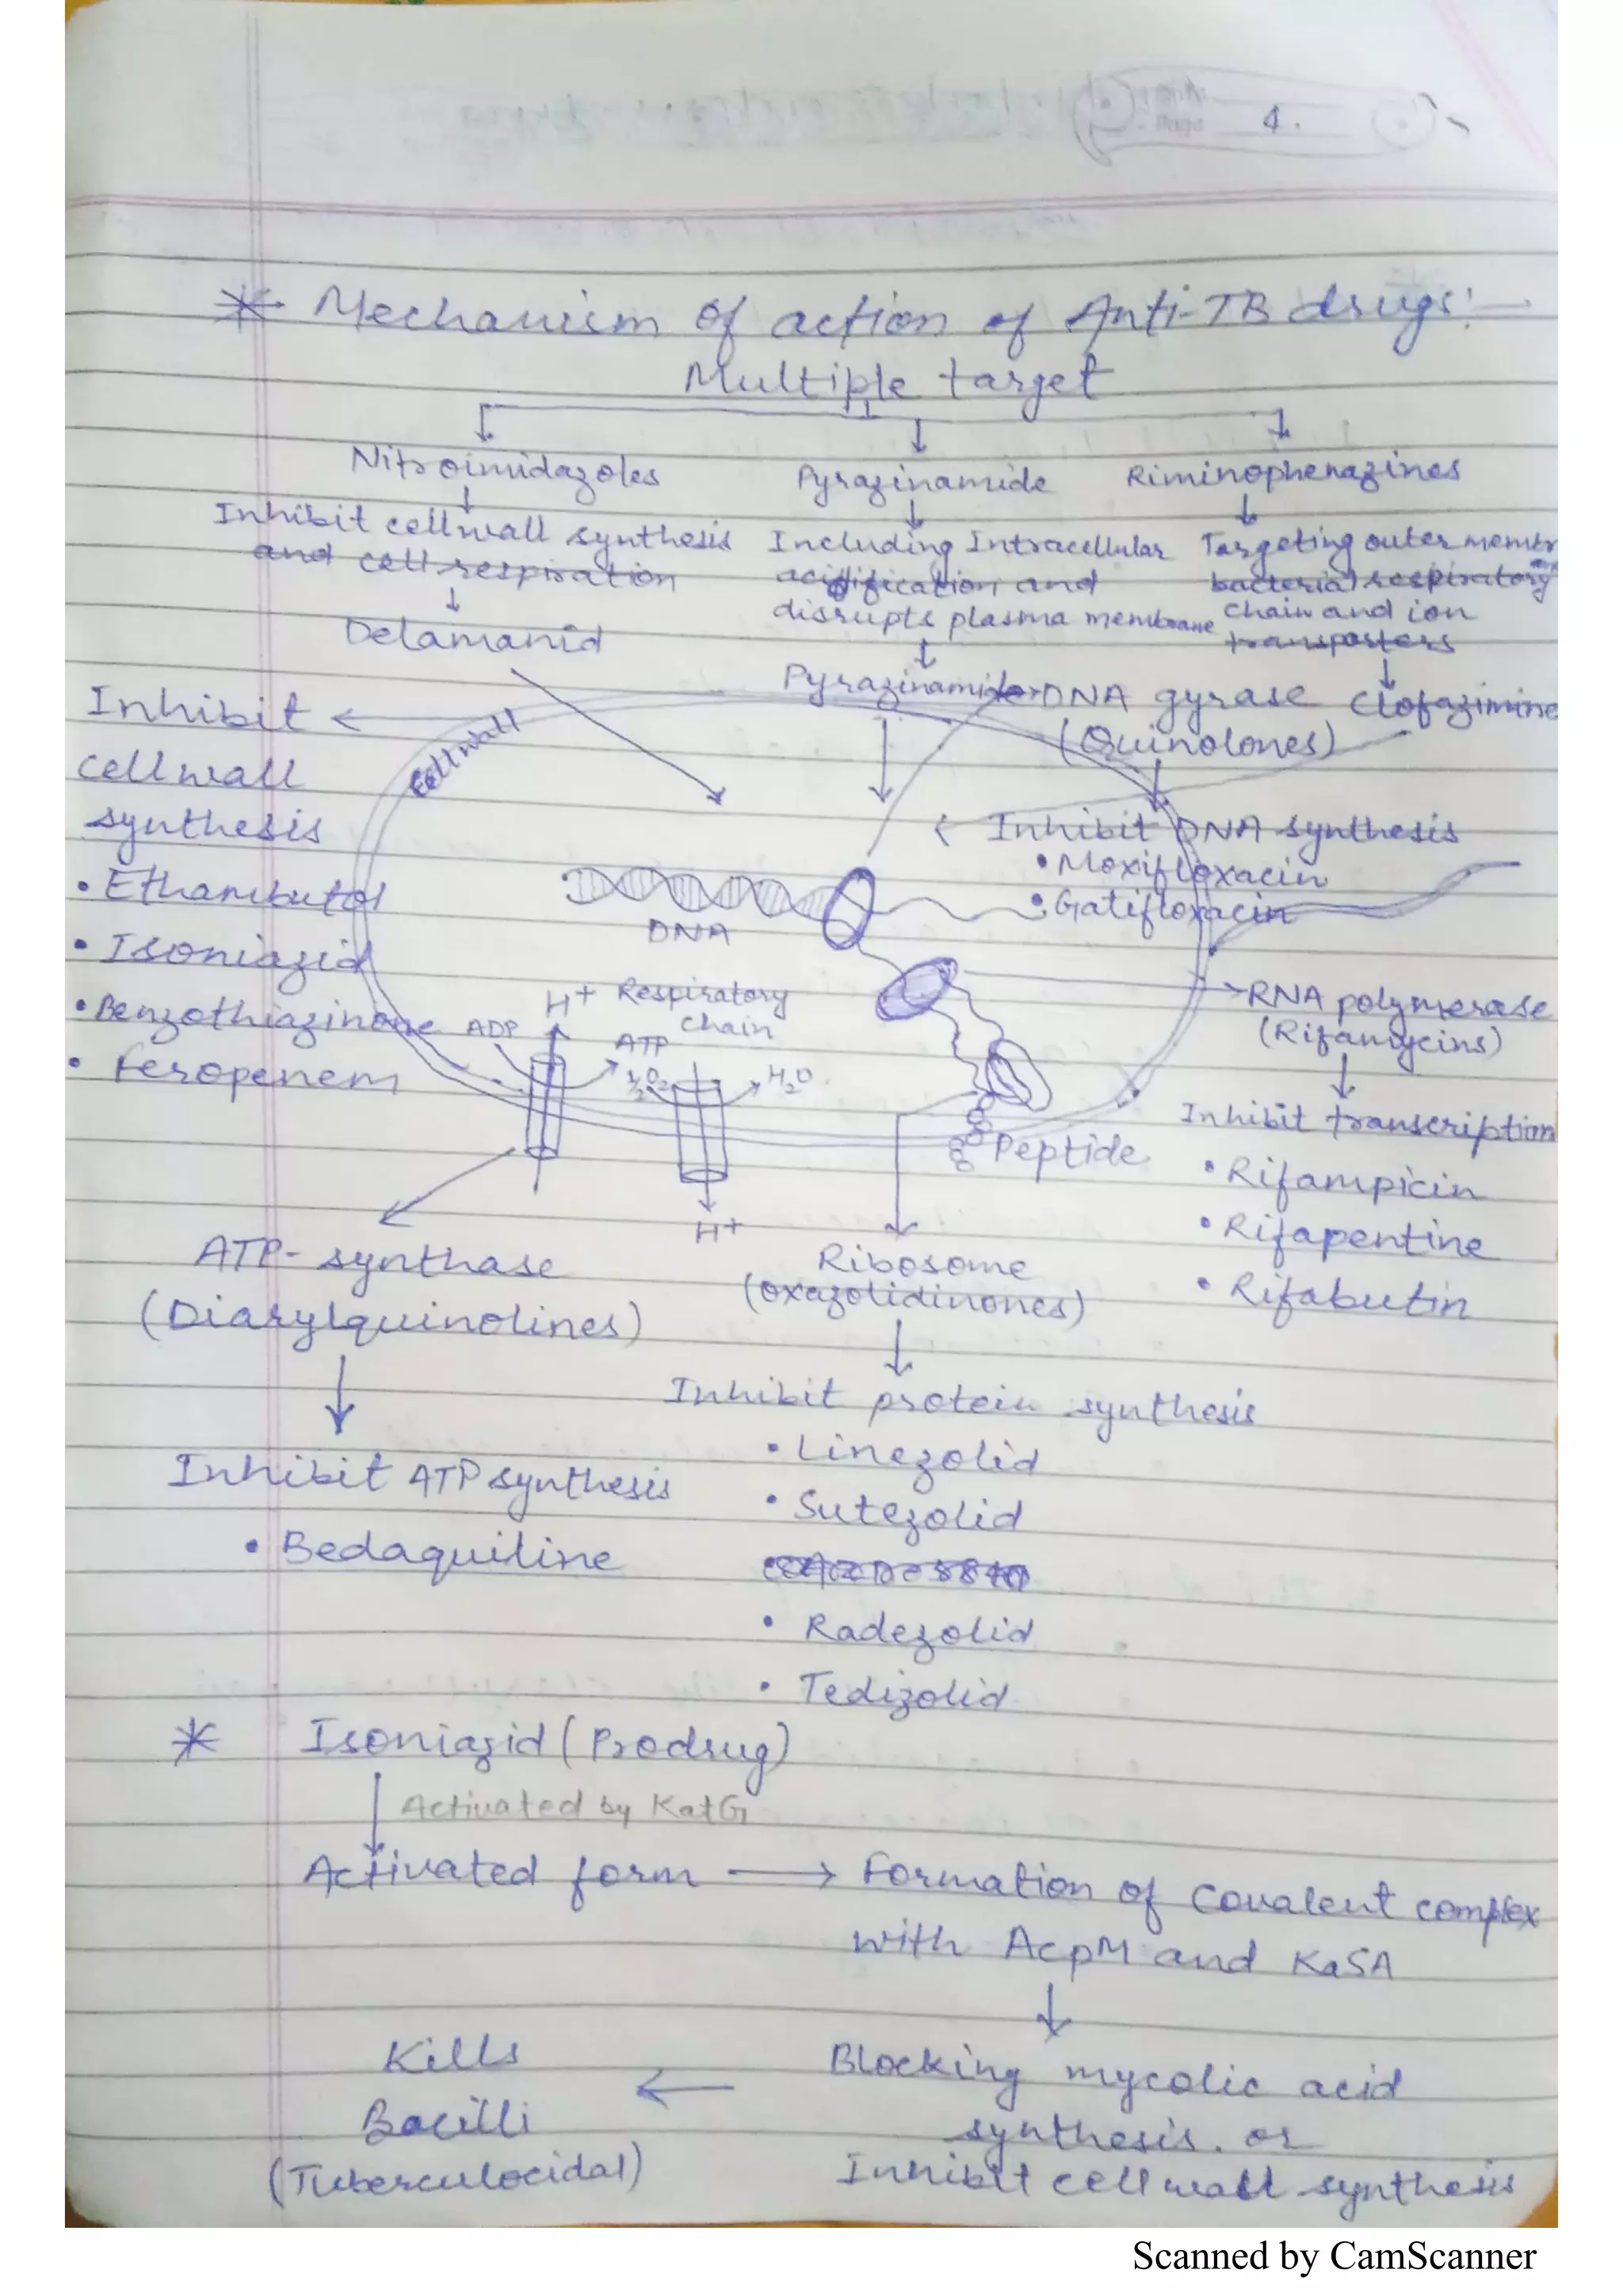 4.
* Mechanism of action of Anti-TB drugs:-
Multiple target
Nitroimidazoles
Inhibit cellwall synthesis
and cell respiration
Delamanid
Pyrazinamide
Including Intracellular
acidification and
disrupts plasma membrane
Pyrazinamide
Riminophenazines
Targeting outer membr
bacterial respiratory
chain and ion
transporters
Clofazimine
DNA gyrase
(Quinolones)
Inhibit DNA synthesis
• Moxifloxacin
• Gatifloxacin
Cell wall
Inhibit
cellwall
synthesis
• Ethambutol
• Isoniazid
• Benzothiazinone
• Feropenem
DNA
H+ Respiratory
chain
ADP
ATP
½O2
H2O
H+
Peptide
RNA polymerase
(Rifamycins)
Inhibit transcription
• Rifampicin
• Rifapentine
• Rifabutin
ATP-synthase
(Diarylquinolines)
Inhibit ATP synthesis
• Bedaquiline
Ribosome
(oxazolidinones)
Inhibit protein synthesis
• Linezolid
• Sutezolid
• Radezolid
• Tedizolid
* Isoniazid (Prodrug)
Activated by KatG
Activated form → Formation of covalent complex
with AcpM and KaSA
Blocking mycolic acid
synthesis. or
Inhibit cell wall synthesis
Kills
Bacilli
(Tuberculocidal)
Scanned by CamScanner